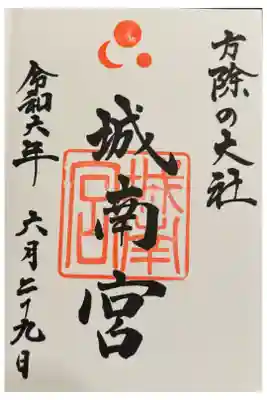 方除の大社
城南宮
城南宮
令和六年 六月二十九日